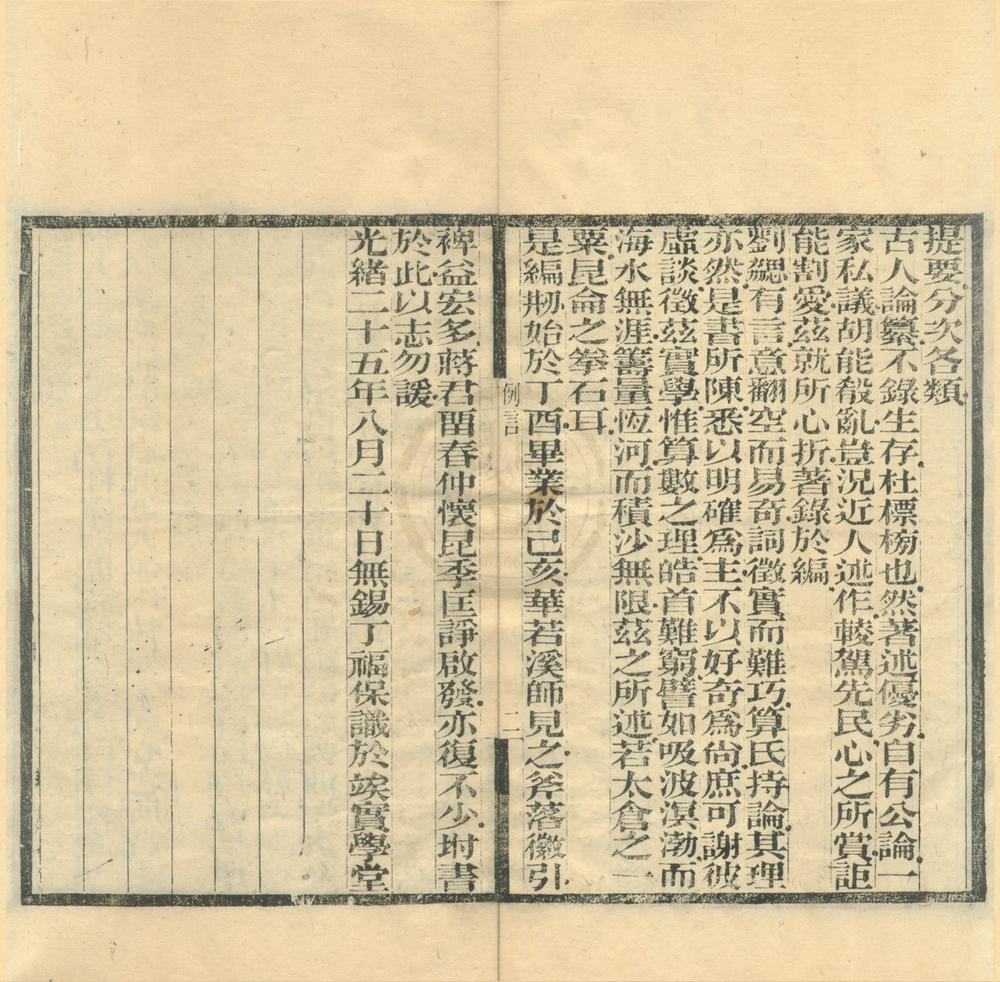 提要分次各類
古人論纂不錄生存杜標榜也然著述優劣自有公論一
家私議胡能殽亂豈況近人述作輘駕先民心之所賞詎
能割愛茲就所心折著錄於編
劉勰有言意翻空而易奇詞徵實而難巧算氏持論其理
亦然是書所陳悉以明確為主不以好奇為尙庶可謝彼
虛談徵茲實學惟算數之理皓首難窮譬如吸波溟渤而
海水無涯籌量恆河而積沙無限茲之所述若太倉之一
粟昆侖之拳石耳
是編剏始於丁酉畢業於己亥華若溪師見之斧落徽引
例言
二
裨益宏多蔣君畱春仲懷昆季匡諍啟發亦復不少坿書
於此以志勿諼
光緒二十五年八月二十日無錫丁福保識於竢實學堂